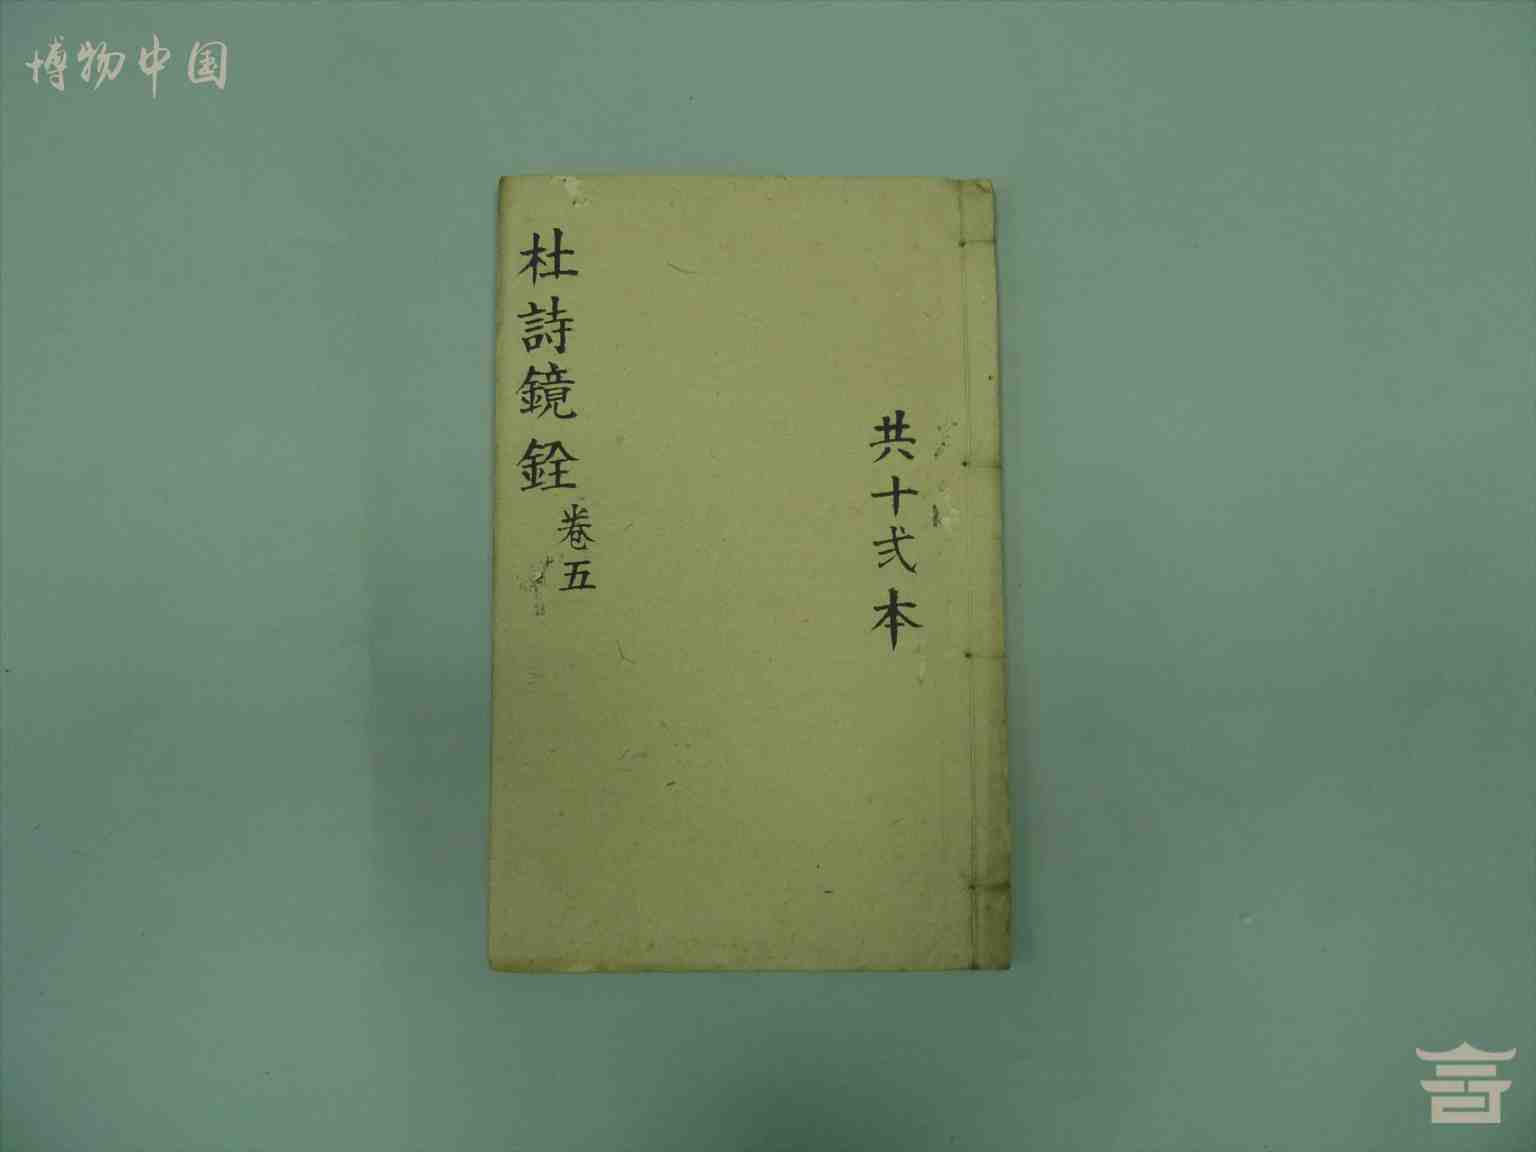 博物中国
共十弍本
杜詩鏡銓
卷五